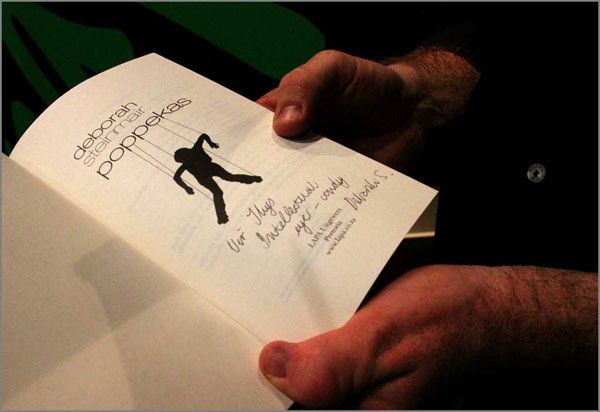 deborah
steinmair
poppekas
Vir Thys
Intellectual
eye-candy
Deborah S.
LAPA Uitgewers
Pretoria
www.lapa.co.za